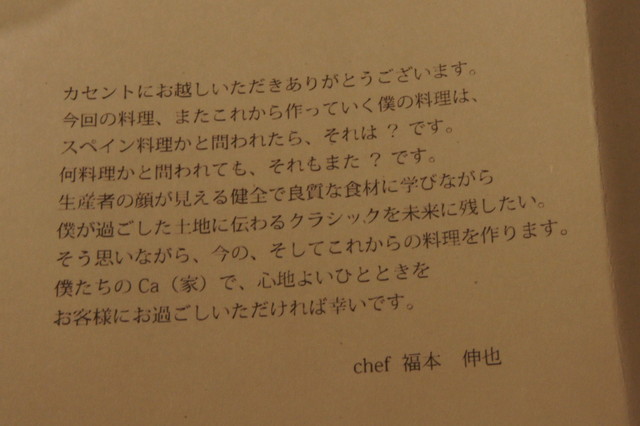 カセントにお越しいただきありがとうございます。
今回の料理、またこれから作っていく僕の料理は、
スペイン料理かと問われたら、それは？です。
何料理かと問われても、それもまた？です。
生産者の顔が見える健全で良質な食材に学びながら
僕が過ごした土地に伝わるクラシックを未来に残したい。
そう思いながら、今の、そしてこれからの料理を作ります。
僕たちの Ca（家）で、心地よいひとときを
お客様にお過ごしいただければ幸いです。
chef 福本　伸也